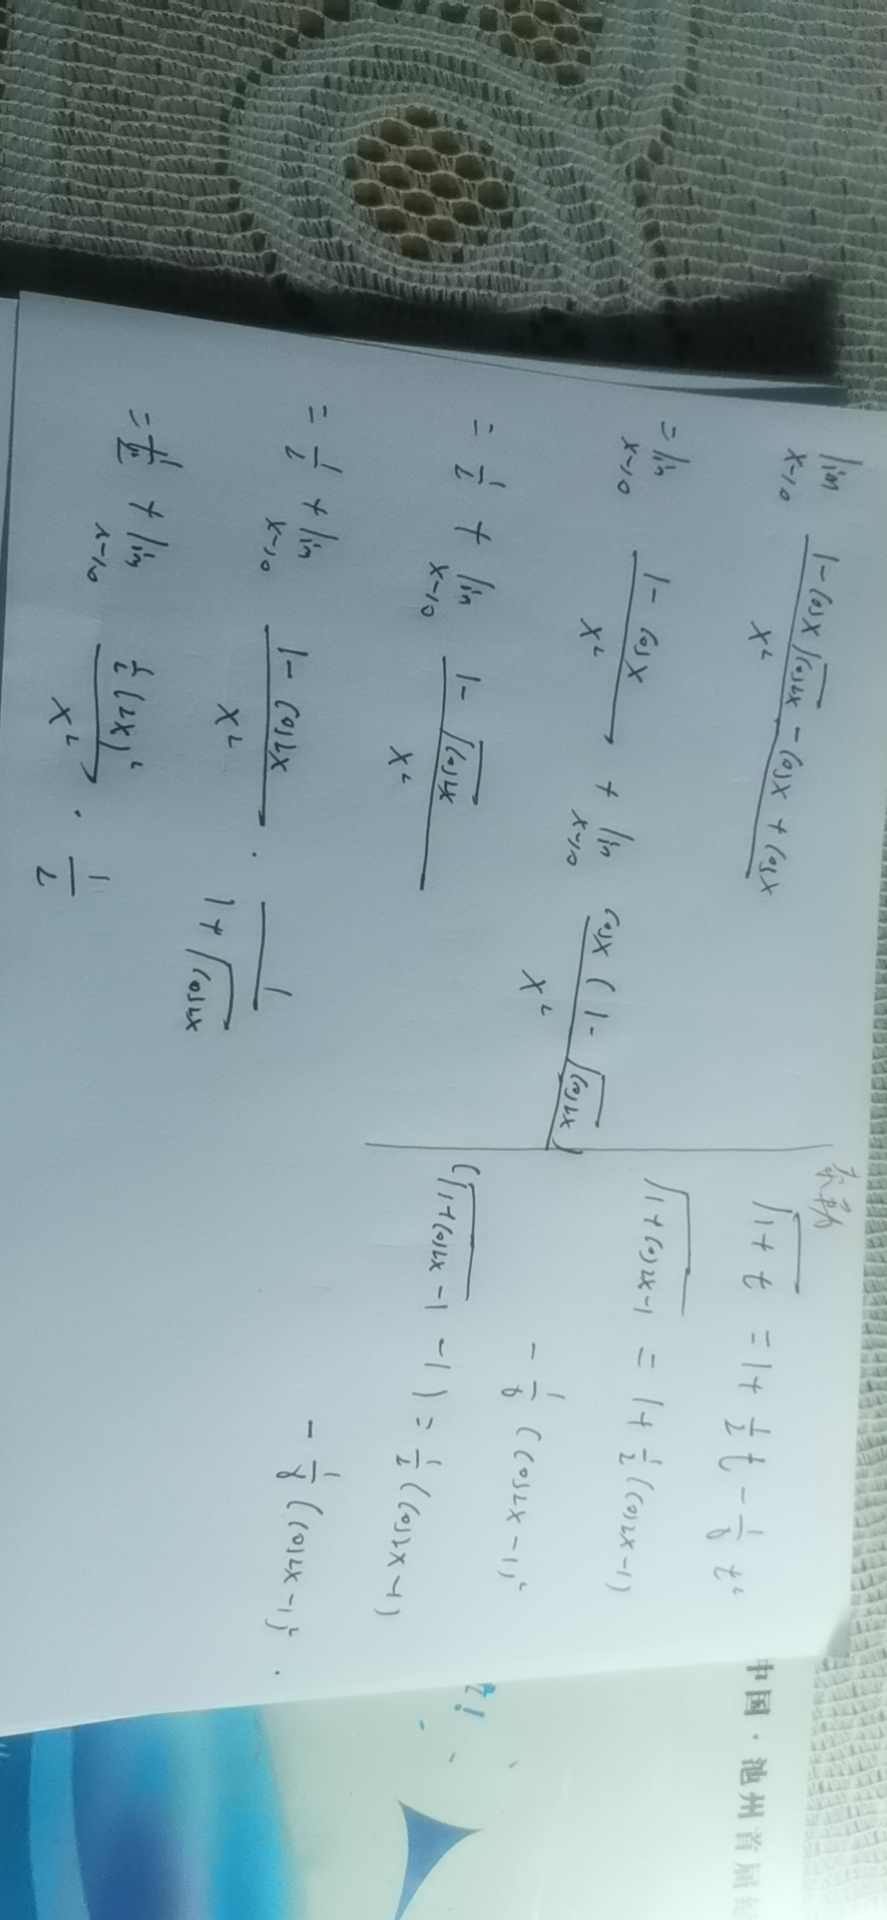 lim x→0 (1-cosx√cos2x - cosx + cosx)/x²
= lim x→0 (1-cosx)/x² + lim x→0 cosx(1-√cos2x)/x²
= 1/2 + lim x→0 (1-√cos2x)/x²
= 1/2 + lim x→0 (1-cos2x)/x² · 1/(1+√cos2x)
= 1/2 + lim x→0 ½(2x)²/x² · 1/2
√1+t = 1+½t-⅛t²
√1+cos2x-1 = 1+½(cos2x-1)
-⅛(cos2x-1)²
(√1+cos2x-1 -1) = ½(cos2x-1)
-⅛(cos2x-1)².
中国·池州首届